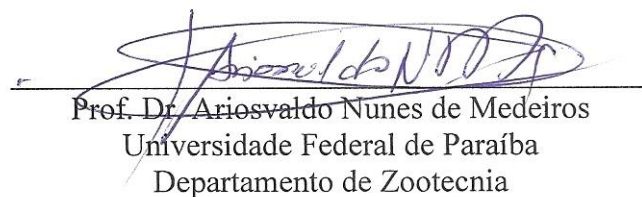 Prof. Dr. Ariosvaldo Nunes de Medeiros
Universidade Federal de Paraíba
Departamento de Zootecnia